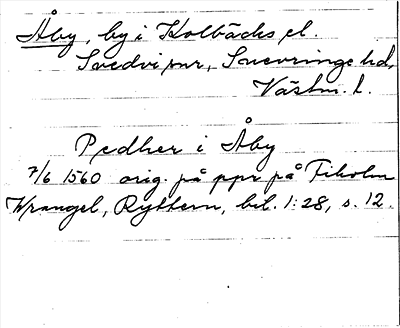 Åby, by i Kolbäcks el.
Svedvi snr, Snevringe hd,
Västm. l.
Pedher i Åby
7/6 1560 orig. på ppr på Tiholm
Wrangel, Ryttern, bil. 1:28, s. 12.